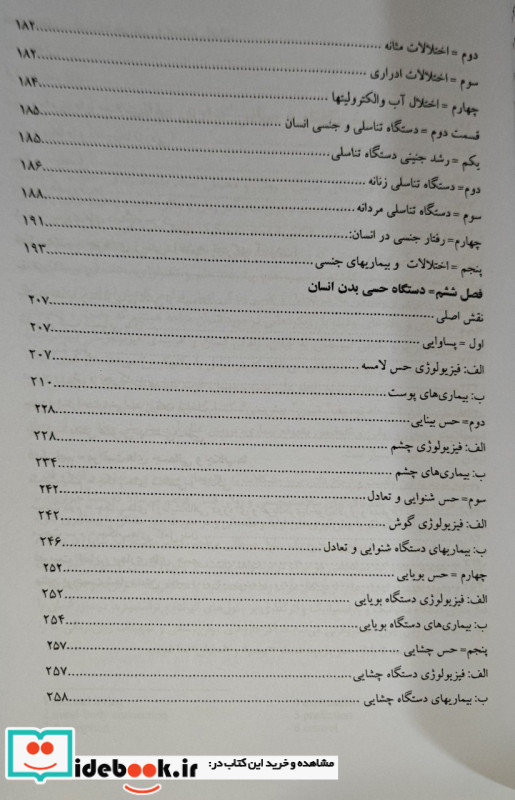 دوم = اختلالات مثانه ........ ۱۸۲
سوم = اختلالات ادراری ........ ۱۸۲
چهارم = اختلال آب والکترولیتها ........ ۱۸۴
قسمت دوم = دستگاه تناسلی و جنسی انسان ........ ۱۸۵
یکم = رشد جنینی دستگاه تناسلی ........ ۱۸۵
دوم= دستگاه تناسلی زنانه ........ ۱۸۶
سوم = دستگاه تناسلی مردانه ........ ۱۸۸
چهارم= رفتار جنسی در انسان: ........ ۱۹۱
پنجم = اختلالات و بیماریهای جنسی ........ ۱۹۳
فصل ششم= دستگاه حسی بدن انسان
نقش اصلی ........ ۲۰۷
اول = پساوایی ........ ۲۰۷
الف: فیزیولوژی حس لامسه ........ ۲۰۷
ب: بیماری‌های پوست ........ ۲۱۰
دوم= حس بینایی ........ ۲۲۸
الف: فیزیولوژی چشم ........ ۲۲۸
ب: بیماری‌های چشم ........ ۲۳۴
سوم= حس شنوایی و تعادل ........ ۲۴۲
الف: فیزیولوژی گوش ........ ۲۴۲
ب: بیماریهای دستگاه شنوایی و تعادل ........ ۲۴۶
چهارم = حس بویایی ........ ۲۵۲
الف: فیزیولوژی دستگاه بویایی ........ ۲۵۲
ب: بیماری‌های دستگاه بویایی ........ ۲۵۴
پنجم= حس چشایی ........ ۲۵۷
الف: فیزیولوژی دستگاه چشایی ........ ۲۵۷
ب: بیماریهای دستگاه چشایی ........ ۲۵۸
مشاهده و خرید این کتاب در:
idebook.ir